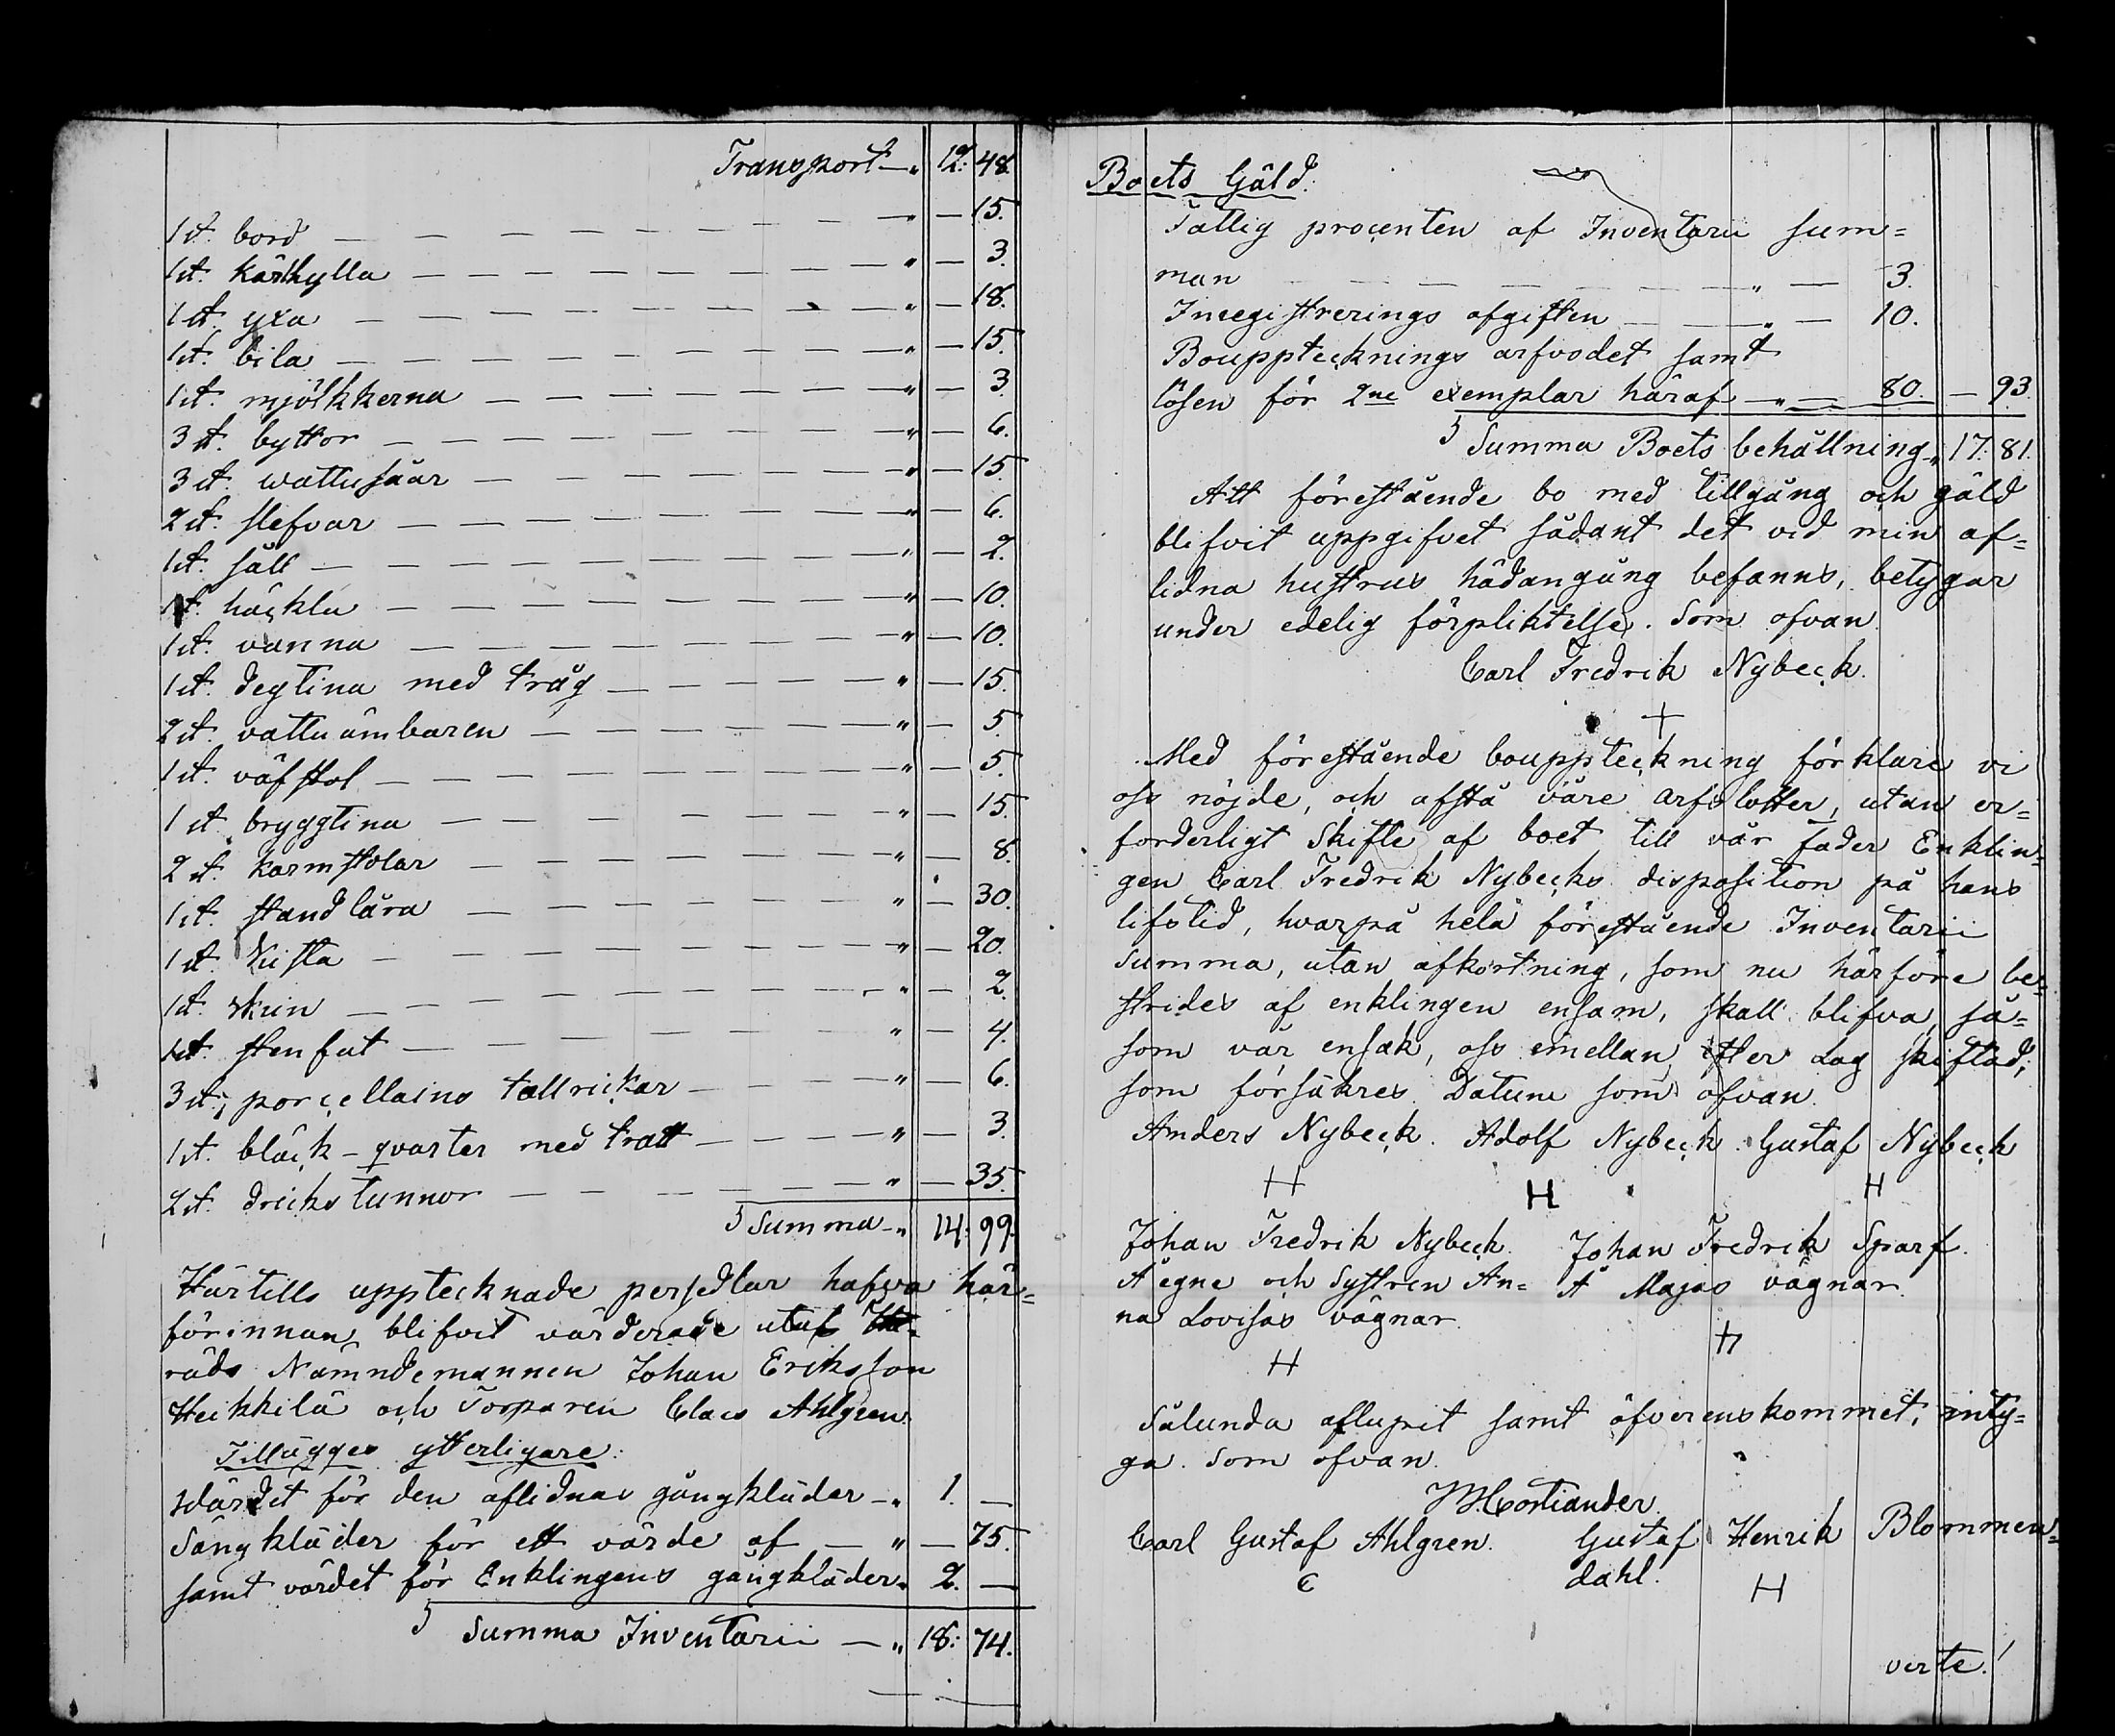 Transport — " 12: 48.
1 st. bord — — — " — 15.
1 st. kärlhylla — — — " — 3.
1 st. yxa — — — " — 18.
1 st. bila — — — " — 15.
1 st. mjölkkerna — — — " — 3.
3 st. byttor — — — " — 6.
3 st. wattusåar — — — " — 15.
2 st. slefvar — — — " — 6.
1 st. såll — — — " — 2.
1 st. häckla — — — " — 10.
1 st. vanna — — — " — 10.
1 st. degtina med tråg — — — " — 15.
2 st. vattuämbaren — — — " — 5.
1 st. väfstol — — — " — 5.
1 st. bryggtina — — — " — 15.
2 st. karmstolar — — — " — 8.
1 st. standlåra — — — " — 30.
1 st. Kista — — — " — 20.
1 st. skrin — — — " — 2.
1 st. stenfat — — — " — 4.
3 st. porcellains tallrickar — — — " — 6.
1 st. bläck-qvarter med tratt — — — " — 3.
2 st. dricks tunnor — — — " — 35.
Summa — " 14: 99.
Härtills upptecknade persedlar hafva här=
förinnan blifvit värderade utaf Hä=
rads Nämndemannen Johan Eriksson
Heikkilä och Torparen Claes Ahlgren.
Tillägges ytterligare:
Wärdet för den aflidnas gångkläder — " 1. —
Sängkläder för ett värde af — " — 75.
samt värdet för Enklingens gångkläder " 2. —
Summa Inventarii — " 18: 74.
Boets Gäld.
Fattig procenten af Inventarii sum=
man — — — " — 3.
Inregistrerings afgiften — — " — 10.
Boupptecknings arfvodet samt
lösen för 2ne exemplar häraf — " — 80. — 93.
Summa Boets behållning " 17: 81.
Att förestående bo med tillgång och gäld
blifvit uppgifvet sådant det vid min af=
lidna hustrus hädangång befanns, betygar
under edelig förpliktelse. Som ofvan.
Carl Fredrik Nybeck.
+
Med förestående bouppteckning förklare vi
oss nöjde, och afstå våre arfslotter, utan er=
forderligt Skifte af boet till vår fader Enklin=
gen Carl Fredrik Nybecks disposition på hans
lifstid, hvarpå hela förestående Inventarii
summa, utan afkortning, som nu härföre be=
strides af enklingen ensam, skall blifva, så=
som vår ensak, oss emellan, efter Lag skiftad;
som försäkres. Datum som ofvan.
Anders Nybeck. Adolf Nybeck. Gustaf Nybeck
H H H
Johan Fredrik Nybeck. Johan Fredrik Sparf.
Å egne och Systren An= Å Majas vägnar.
na Lovisas vägnar.
H
Sålunda aflupit samt öfverenskommet, inty=
ga. Som ofvan.
Carl Gustaf Ahlgren. Gustaf Henrik Blommen=
dahl.
H
verte!